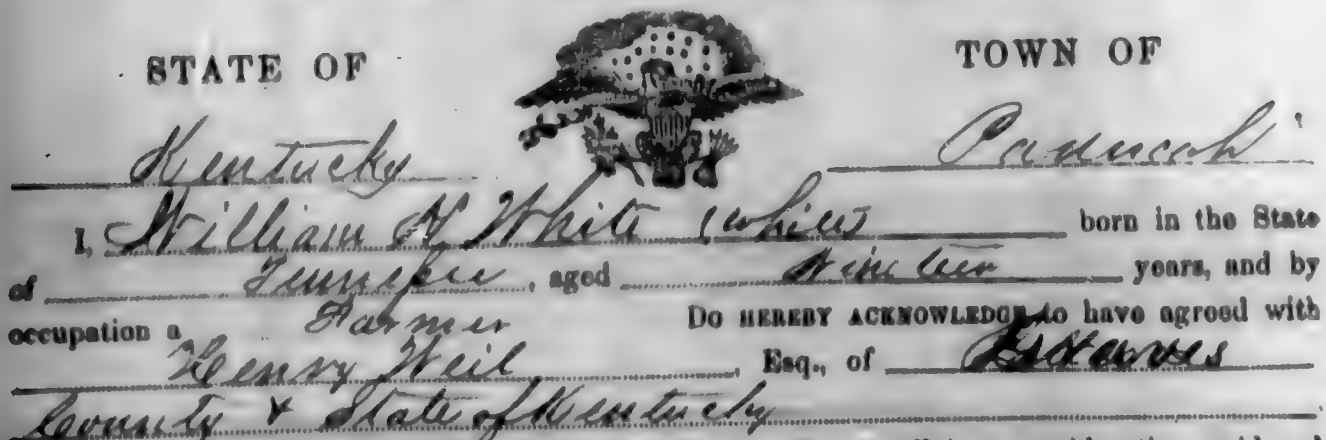 STATE OF
TOWN OF
Kentucky
Paducah
I, William H White (white) born in the State
of Tennessee, aged Nineteen years, and by
occupation a Farmer Do HEREBY ACKNOWLEDGE to have agreed with
Henry Weil, Esq., of Graves
County & State of Kentucky